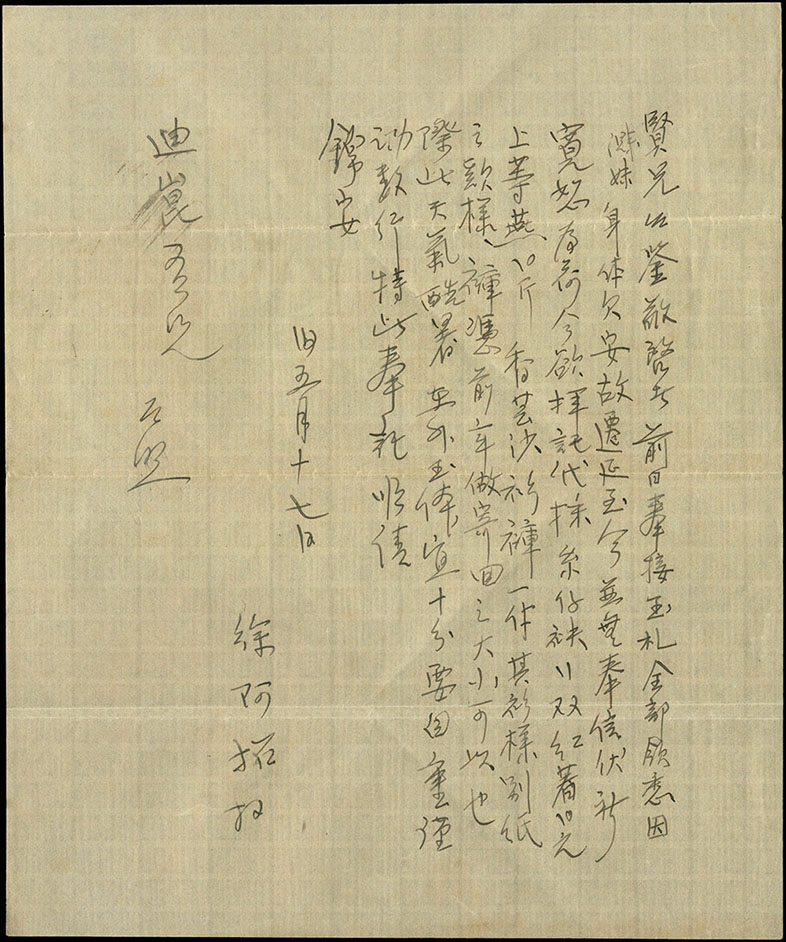 賢兄台鑒敬啓者前日奉接玉札全部領悉因
妹身体欠安故遷延至今並無奉信伏祈
寬恕為荷今欲拝託代採糸仔袂〢双紅著〢元
上等燕〢斤香芸沙衫褲一件其衫樣別紙
之款樣褲憑前年做寄回之大小可以也
際此天氣酷暑在外玉体宜十分要自重謹
此特此奉託順請
錦安
旧五月十七日
徐阿招
迪崑吾兄 台照